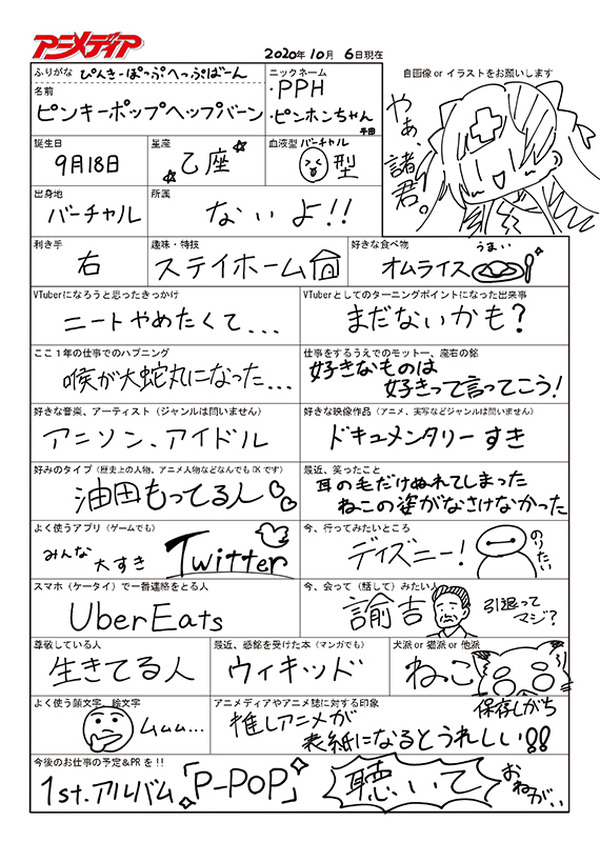 アニメディア
2020年10月 6日現在
ふりがな ぴんきーぽっぷへっぷばーん
名前
ピンキーポップヘップバーン
ニックネーム
・PPH
・ピンホンちゃん
自画像 or イラストをお願いします
やぁ、諸君。
誕生日
9月18日
星座
乙座
血液型 バーチャル
型
出身地
バーチャル
所属
ないよ!!
利き手
右
趣味・特技
ステイホーム
好きな食べ物
オムライス
うまい
VTuberになろうと思ったきっかけ
ニートやめたくて...
VTuberとしてのターニングポイントになった出来事
まだないかも?
ここ1年の仕事でのハプニング
喉が大蛇丸になった...
仕事をするうえでのモットー、座右の銘
好きなものは
好きって言ってこう!
好きな音楽、アーティスト（ジャンルは問いません）
アニソン、アイドル
好きな映像作品（アニメ、実写などジャンルは問いません）
ドキュメンタリーすき
好みのタイプ（歴史上の人物、アニメ人物などなんでもOKです）
油田もってる人
最近、笑ったこと
耳の毛だけぬれてしまった
ねこの姿がなさけなかった
よく使うアプリ（ゲームでも）
みんな
大すき
Twitter
今、行ってみたいところ
ディズニー!
のりたい
スマホ（ケータイ）で一番連絡をとる人
UberEats
今、会って（話して）みたい人
諭吉
引退って
マジ?
尊敬している人
生きてる人
最近、感銘を受けた本（マンガでも）
ウィキッド
犬派 or 猫派 or 他派
ねこ
よく使う顔文字、絵文字
ムムム...
アニメディアやアニメ誌に対する印象
推しアニメが
表紙になるとうれしい!!
保存しがち
今後のお仕事の予定&PRを!!
1st.アルバム「P-POP」
聴いて
おねがい